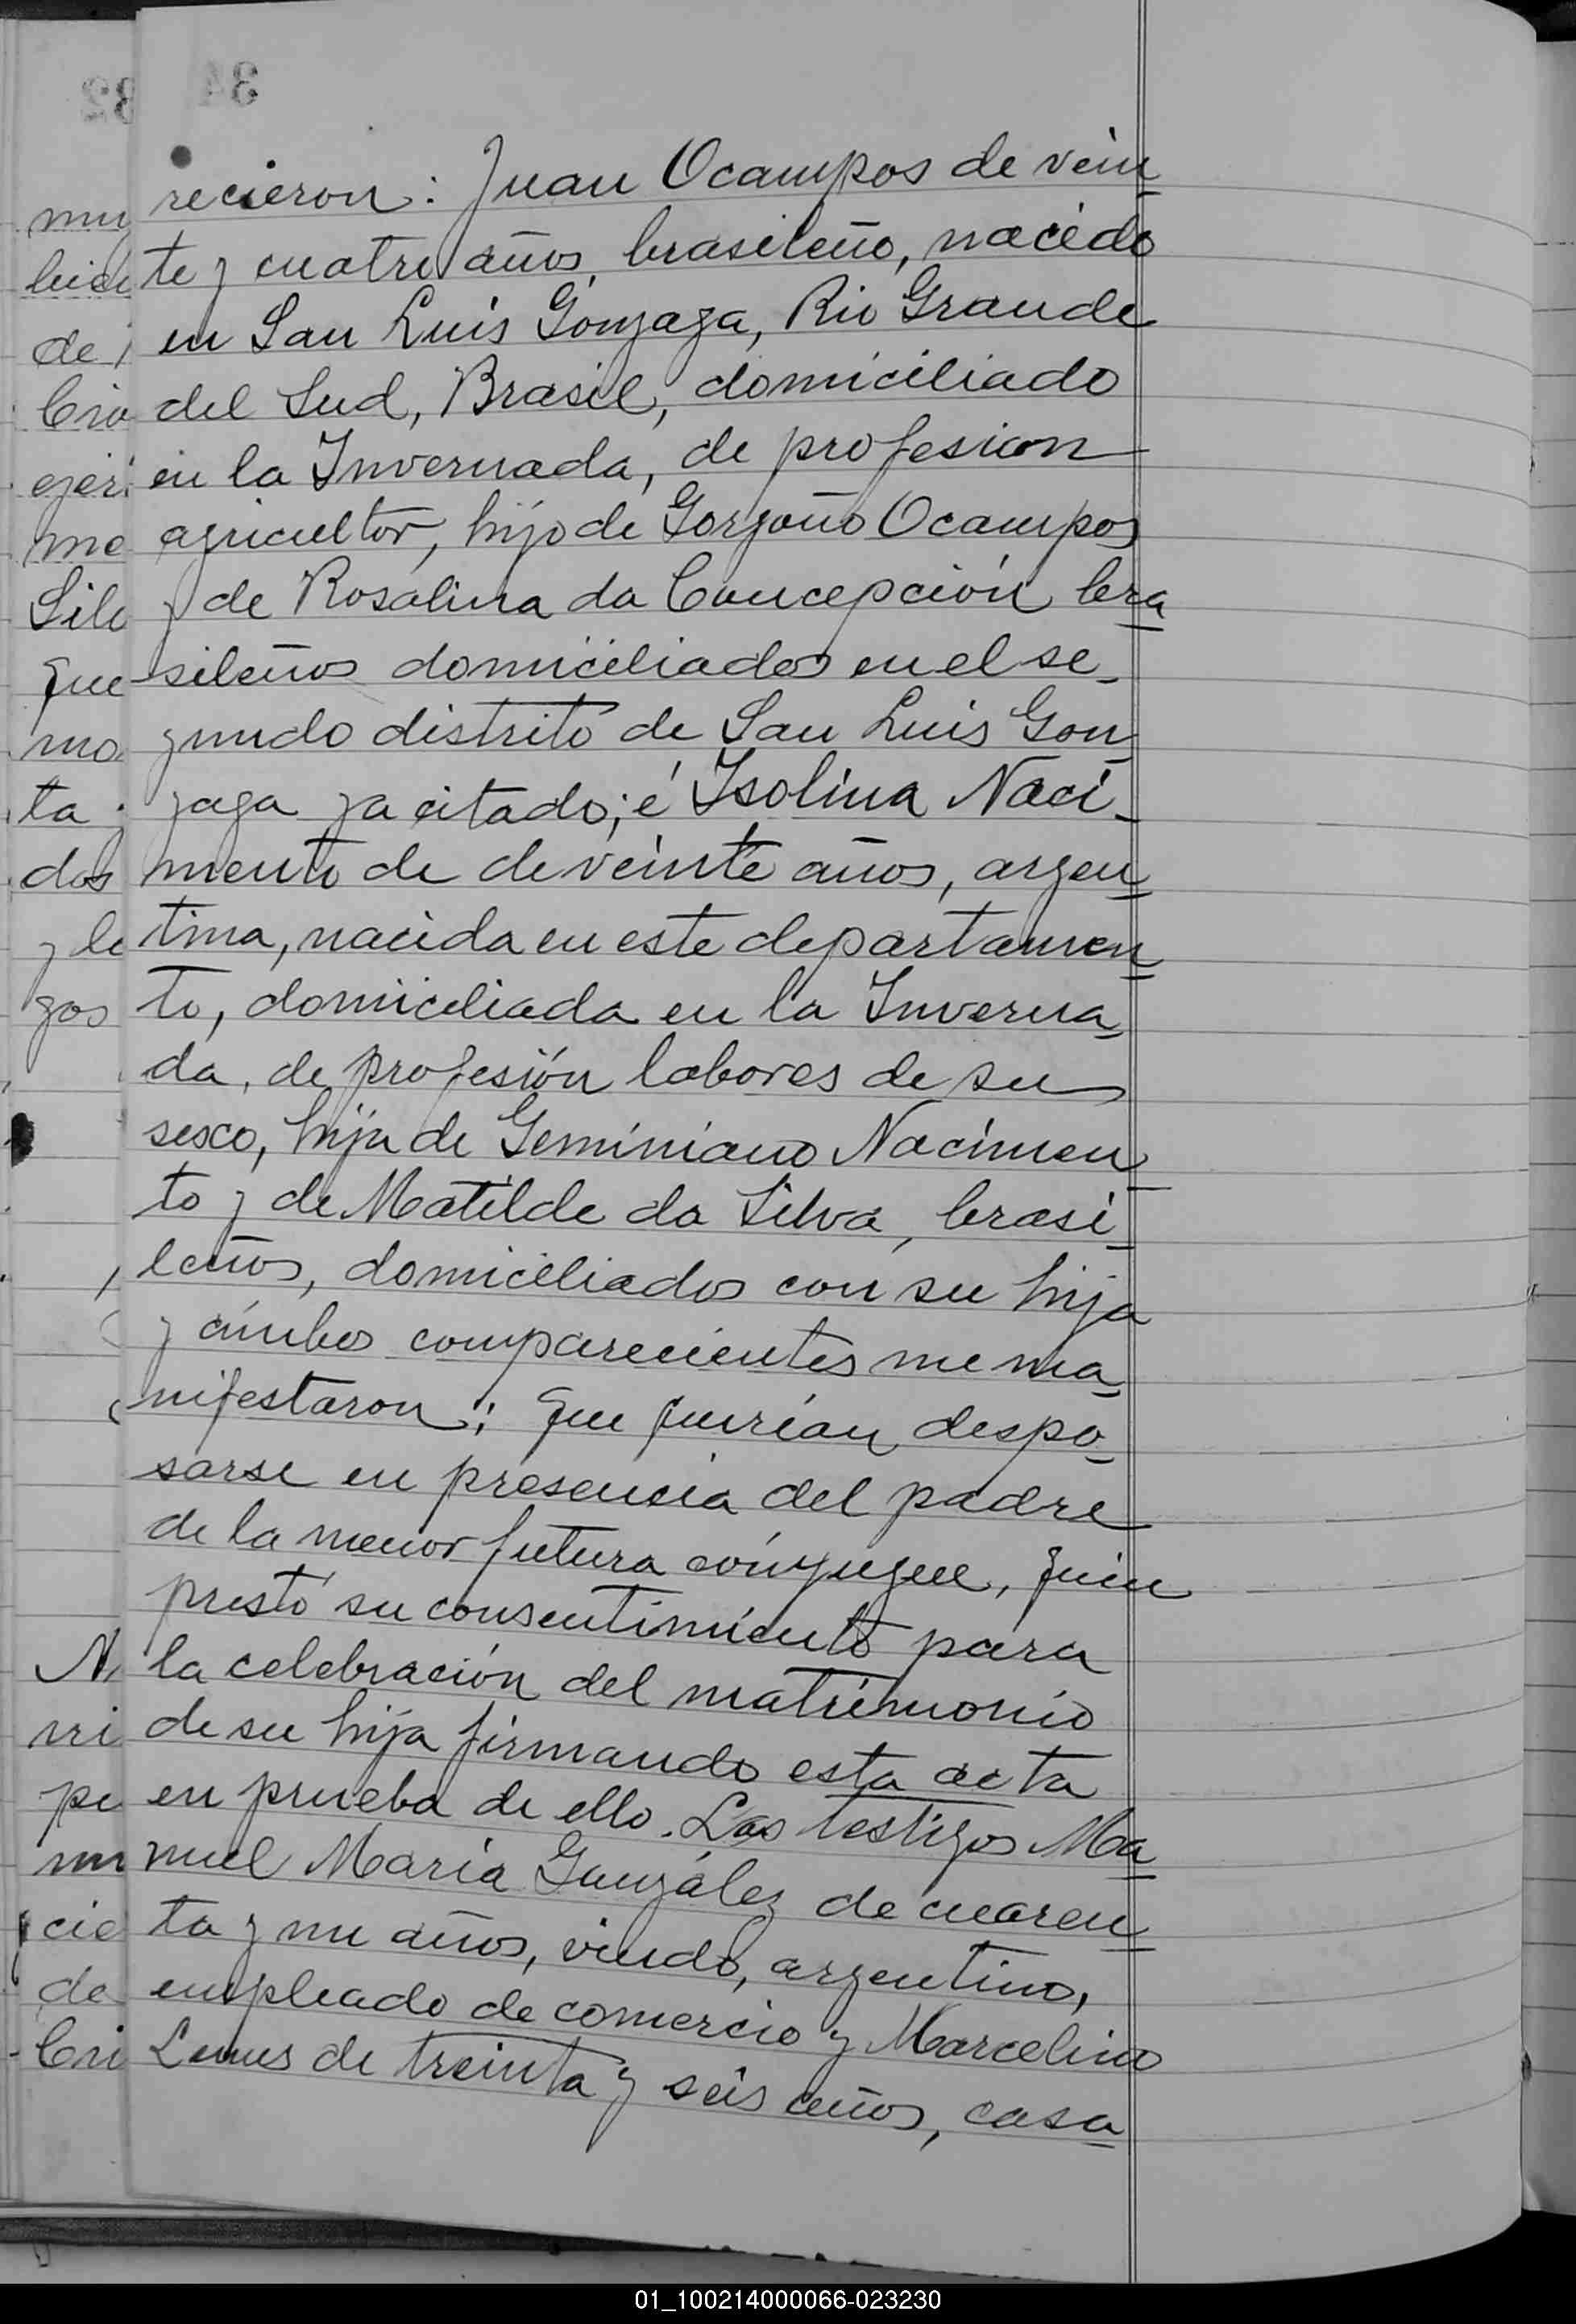 recieron: Juan Ocampos de vein
te y cuatro años, brasileño, nacido
en San Luis Gonzaga, Rio Grande
del Sud, Brasil, domiciliado
en la Invernada, de profesion
agricultor, hijo de Gorgoño Ocampos
y de Rosalina da Concepción bra
sileños domiciliados en el se_
gundo distrito de San Luis Gon
zaga ya citado; é Isolina Naci_
mento de de veinte años, argen
tina, nacida en este departamen
to, domiciliada en la Inverna_
da, de profesión labores de su
sexo, hija de Geminiano Nacimen
to y de Matilde da Silva, brasi_
leños, domiciliados con su hija
y ámbos comparecientes me ma_
nifestaron: Que querían despo_
sarse en presencia del padre
de la menor futura cónyugue, quien
prestó su consentimiento para
la celebración del matrimonio
de su hija firmando esta acta
en prueba de ello. Los testigos Ma
nuel María González de cuaren
ta y un años, viudo, argentino,
empleado de comercio y Marcelino
Lemes de treinta y seis años, casa
01_100214000066-023230